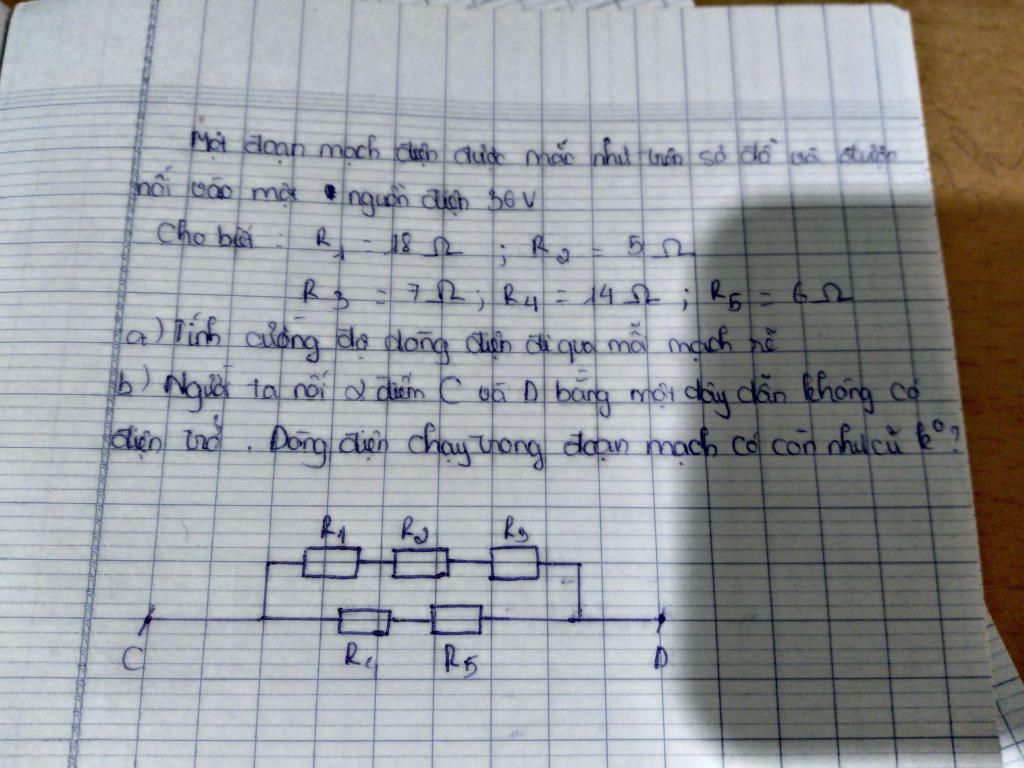 Một đoạn mạch điện được mắc như trên sơ đồ và được
nối vào một nguồn điện 36V
Cho biết : R1 = 18 Ω ; R2 = 5 Ω
R3 = 7 Ω ; R4 = 14 Ω ; R5 = 6 Ω
a) Tính cường độ dòng điện đi qua mỗi mạch rẽ
b) Người ta nối 2 điểm C và D bằng một dây dẫn không có
điện trở . Dòng điện chạy trong đoạn mạch có còn như cũ k°?
R1 R2 R3
C R4 R5 D